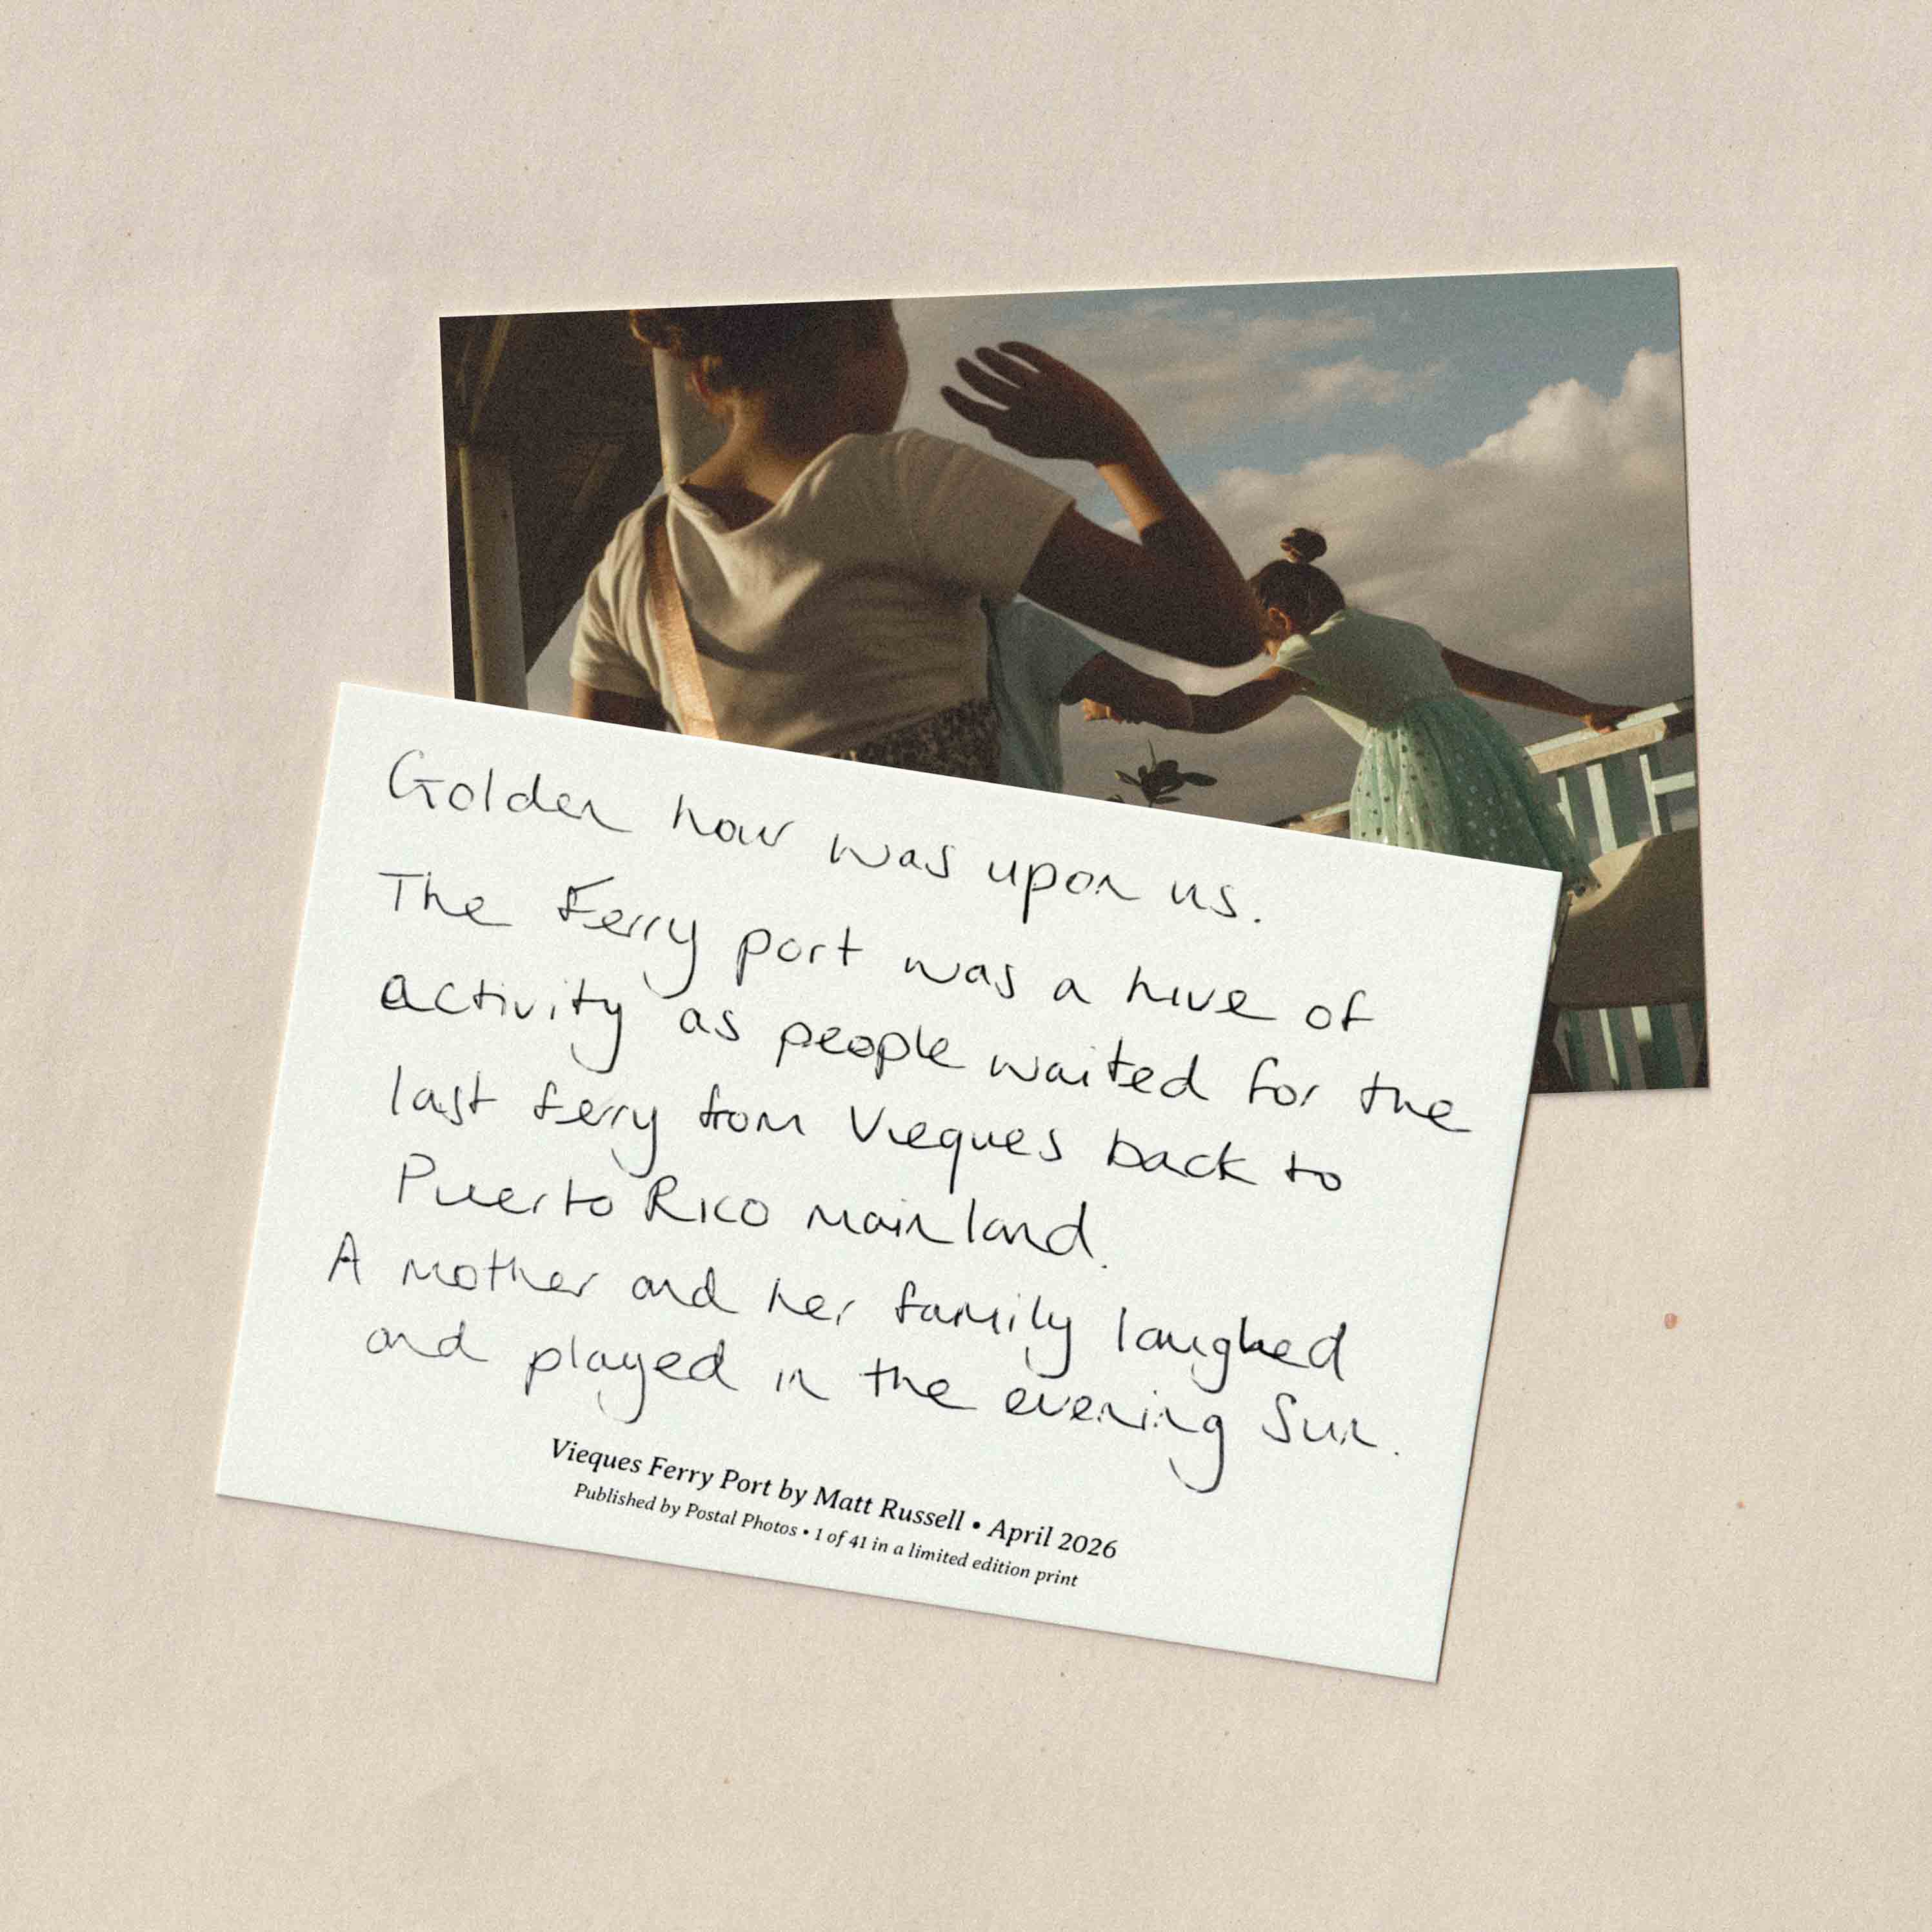 Golden hour was upon us.
The Ferry port was a hive of
activity as people waited for the
last ferry from Vieques back to
Puerto Rico mainland.
A mother and her family laughed
and played in the evening Sun.
Vieques Ferry Port by Matt Russell • April 2026
Published by Postal Photos • 1 of 41 in a limited edition print